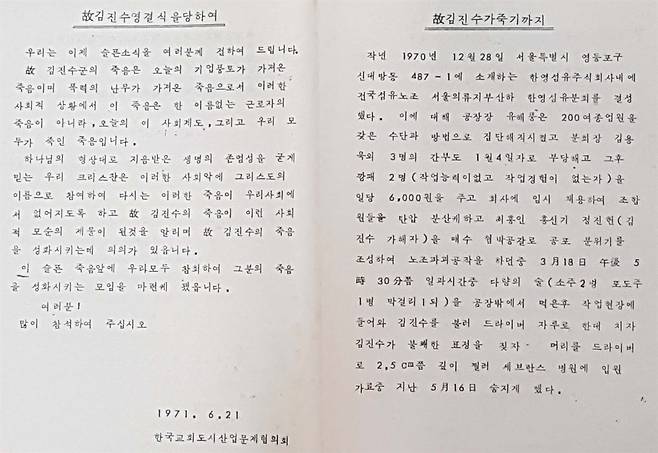 故김진수영결식을당하여
우리는 이제 슬픈소식을 여러분께 전하여 드립니다.
故 김진수군의 죽음은 오늘의 기업풍토가 가져온
죽음이며 폭력의 난무가 가져온 죽음으로서 이러한
사회적 상황에서 이 죽음은 한 이름없는 근로자의
죽음이 아니라, 오늘의 이 사회제도, 그리고 우리 모
두가 죽인 죽음입니다.
하나님의 형상대로 지음받은 생명의 존엄성을 굳게
믿는 우리 크리스챤은 이러한 사회악에 그리스도의
이름으로 참여하여 다시는 이러한 죽음이 우리사회에
서 없어지도록 하고 故 김진수의 죽음이 이런 사회
적 모순의 제물이 된것을 알리며 故 김진수의 죽음
을 성화시키는데 의의가 있읍니다.
이 슬픈 죽음앞에 우리모두 참회하여 그분의 죽음
을 성화시키는 모임을 마련케 됐읍니다.
여러분!
많이 참석하여 주십시오
1971. 6.21
한국교회도시산업문제협의회
故김진수가죽기까지
작년 1970년 12월28일 서울특별시 영등포구
신대방동 487-1에 소재하는 한영섬유주식회사내에
전국섬유노조 서울의류지부산하 한영섬유분회를 결성
했다. 이에 대해 공장장 유해풍은 200여종업원을
갖은 수단과 방법으로 집단해직시켰고 분회장 김용
욱외 3명의 간부도 1월4일자로 부당해고 그후
깡패 2명(작업능력이없고 작업경험이 없는자)을
일당 6,000원을 주고 회사에 임시 채용하여 조합
원들을 탄압 분산케하고 최홍인 홍신기 정진헌(김
진수 가해자)을 매수 협박공갈로 공포 분위기를
조성하여 노조파괴공작을 하던중 3月18日 午後 5
時 30分쯤 일과시간중 다량의 술(소주2병 포도주
1병 막걸리1되)을 공장밖에서 먹은후 작업현장에
들어와 김진수를 불러 드라이버 자루로 한대 치자
김진수가 불쾌한 표정을 짓자 머리를 드라이버
로 2,5㎝쯤 깊이 찔러 세브란스 병원에 입원
가료중 지난 5月16日 숨지게 했다.